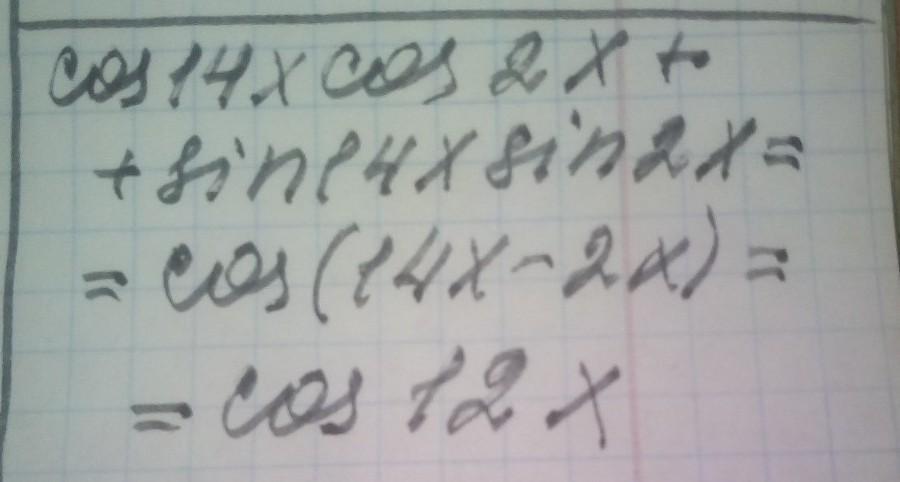 cos14x cos 2x +
+ sin14x sin2x =
= cos(14x - 2x) =
= cos 12 x